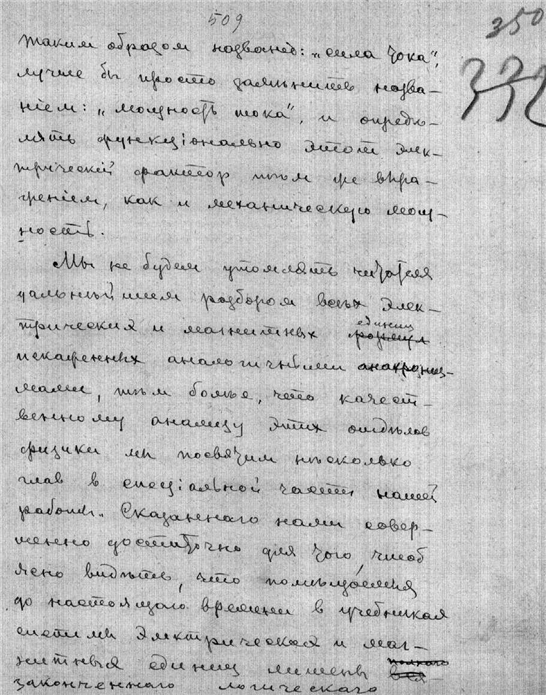 509
350
332
Таким образом названіе: „сила тока",
лучше бы просто замѣнить назва-
ніем: „мощность тока", и опредѣ-
лять функціонально этот элек-
трическій фактор тѣм же выра-
женіем, как и механическую мощ-
ность.
Мы не будем утомлять читателя
дальнѣйшим разбором всѣх элек-
трических и магнитных единиц
искаженных аналогичными анахрониз-
мами, тѣм болѣе, что качест-
венному анализу этих отдѣлов
физики мы посвятим нѣсколько
глав в спеціальной части нашей
работы. Сказаннаго нами совер-
шенно достаточно для того, чтоб
ясно видѣть, что помѣщаемая
до настоящаго времени в учебниках
система электрических и маг-
нитных единиц лишены
законченнаго логическаго